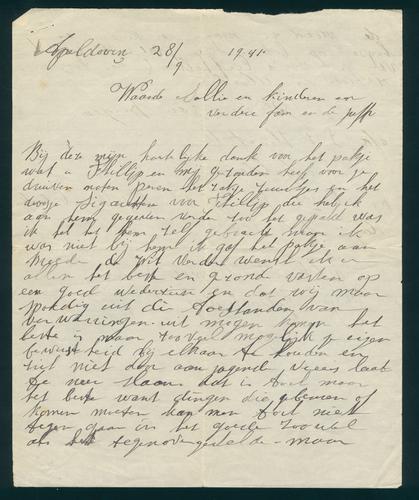 Apeldoorn 28/9 1941.
Waarde Sallie en kinderen en
verdere fam en de juffr
Bij deze mijn hartelijke dank voor het pakje
wat u Phillip en mij gezonden heef voor je
druiven noten peren het zakje en het
doosje Sigaretten voor Phillip die heb ik
aan hem gegeven verder toe het gepakt was
ik het het hem zelf gebracht maar ik
was niet bij hem ik gaf het pakje aan
de Wit Verder wensch ik u
allen het beste en gezond varen op
een goed wederzien en dat wij maar
spoedig uit die toestanden van
verwarringen uit mogen komen het
beste is maar zooveel mogelijk je eigen
bewust heid bij elkaar te houden en
niet door aan jagend vrees laat
te neer slaan dat is toch maar
het beste want dingen die gebeuren of
komen moeten kan men toch niet
tegen gaan in het goede zoowel
als het tegenovergestelde - maar